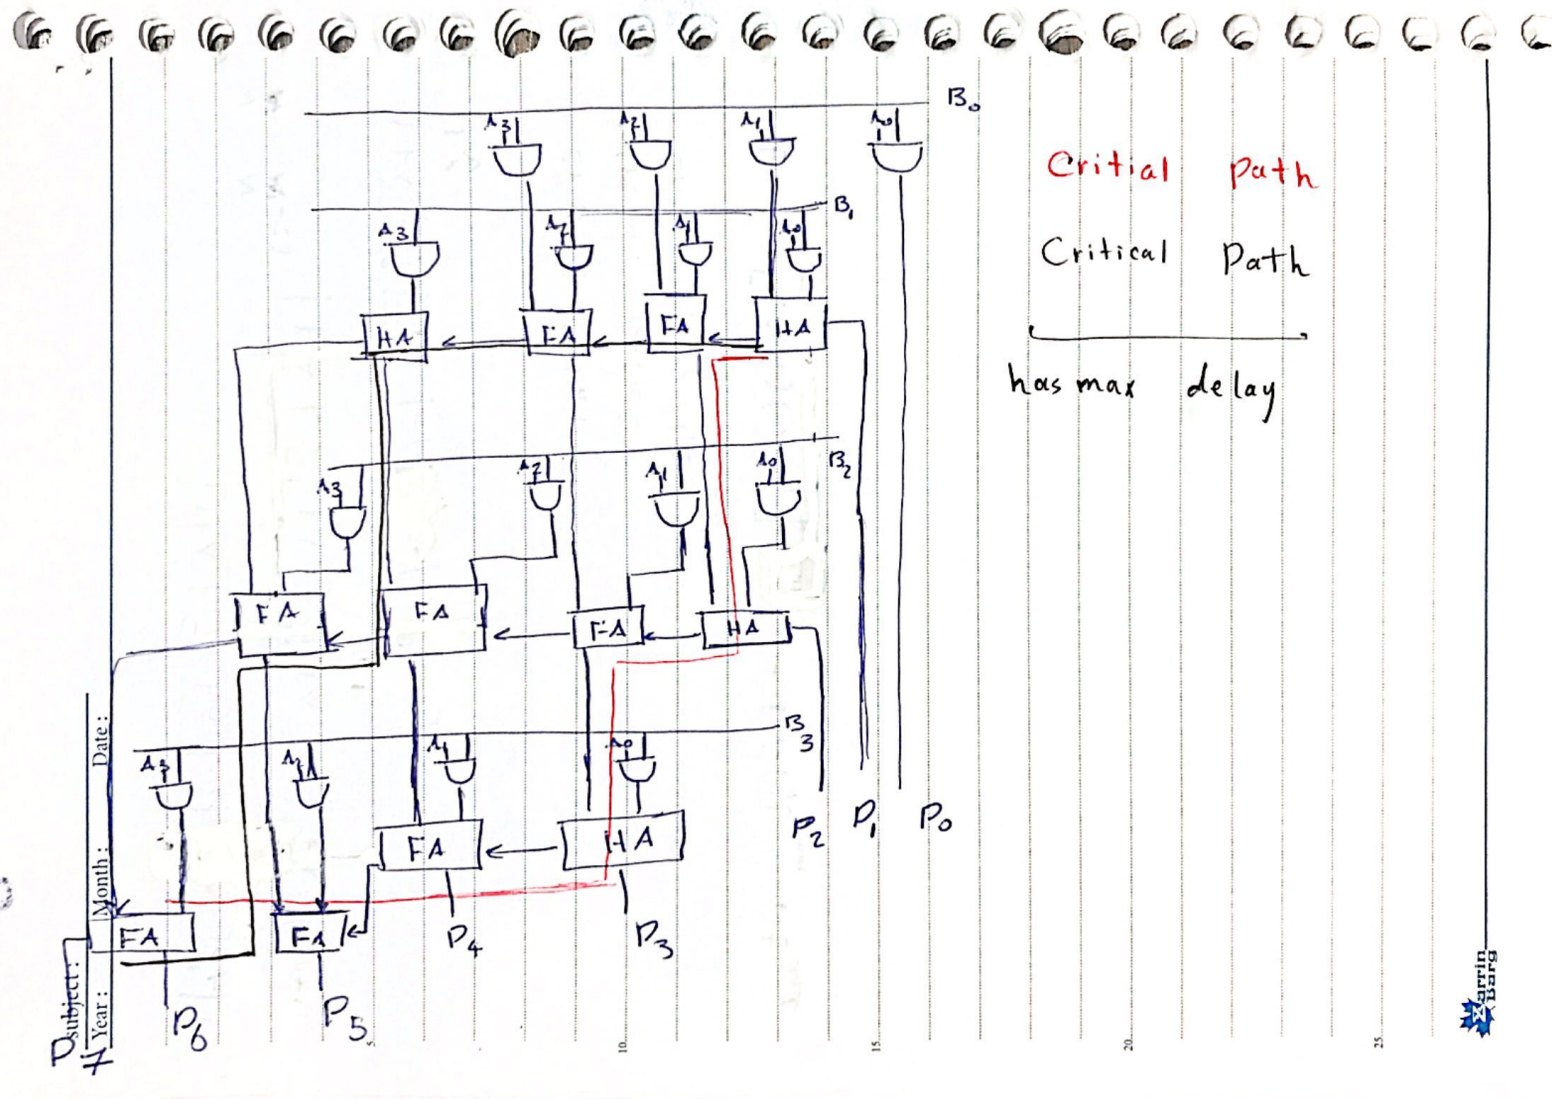 B0
A3 A2 A1 A0
B1
A3 A2 A1 A0
HA FA FA HA
Critial Path
Critical Path
has max delay
B2
A3 A2 A1 A0
FA FA FA HA
B3
A3 A2 A1 A0
FA HA
P2 P1 P0
FA FA
P4 P3
P6 P5
P7
Subject:
Year: Month: Date:
5 10 15 20 25
Zarrin Barg